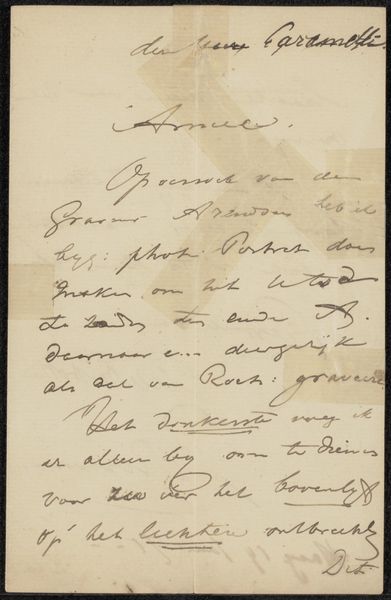 den Caramelli.
Amice.
Op verzoek van den
graveur Arendzen heb ik
byg: phot. Portret doen
maken om dit U toe
te zenden ten einde A.
daarnaar een dergelijk
als dat van Roch: graveere
Het donkerste voeg ik
er alleen by om te dienen
voor zoo ver het bovenlyf
op het lichten ontbreekt
Dit